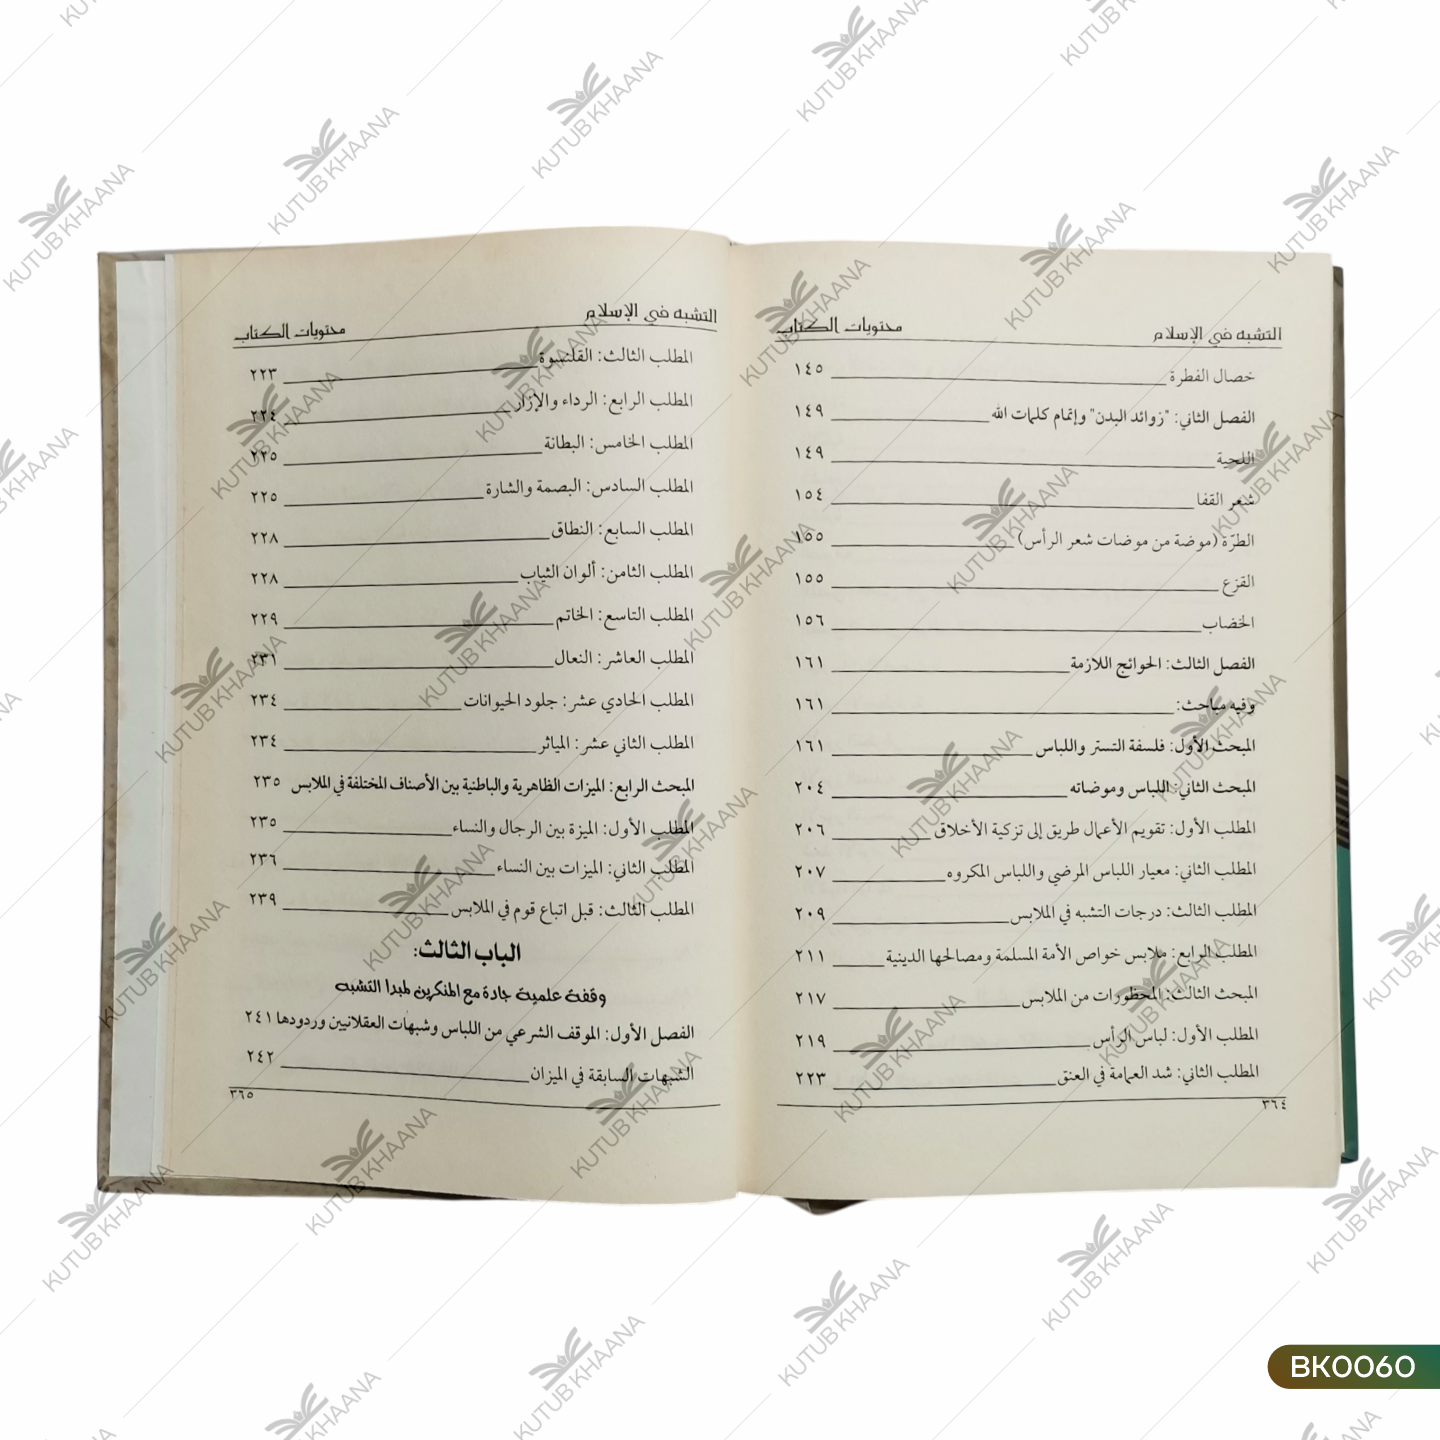 التشبه في الإسلام محتويات الكتاب
خصال الفطرة ١٤٥
الفصل الثاني: "زوائد البدن" وإتمام كلمات الله ١٤٩
اللحية ١٤٩
شعر القفا ١٥٤
الطرّة (موضة من موضات شعر الرأس) ١٥٥
القزع ١٥٥
الخضاب ١٥٦
الفصل الثالث: الحوائج اللازمة ١٦١
وفيه مباحث: ١٦١
المبحث الأول: فلسفة التستر واللباس ١٦١
المبحث الثاني: اللباس وموضاته ٢٠٤
المطلب الأول: تقويم الأعمال طريق إلى تزكية الأخلاق ٢٠٦
المطلب الثاني: معيار اللباس المرضي واللباس المكروه ٢٠٧
المطلب الثالث: درجات التشبه في الملابس ٢٠٩
المطلب الرابع: ملابس خواص الأمة المسلمة ومصالحها الدينية ٢١١
المبحث الثالث: المحظورات من الملابس ٢١٧
المطلب الأول: لباس الرأس ٢١٩
المطلب الثاني: شد العمامة في العنق ٢٢٣
٣٦٤
التشبه في الإسلام محتويات الكتاب
المطلب الثالث: القلنسوة ٢٢٣
المطلب الرابع: الرداء والإزار ٢٢٤
المطلب الخامس: البطانة ٢٢٥
المطلب السادس: البصمة والشارة ٢٢٥
المطلب السابع: النطاق ٢٢٨
المطلب الثامن: ألوان الثياب ٢٢٨
المطلب التاسع: الخاتم ٢٢٩
المطلب العاشر: النعال ٢٣١
المطلب الحادي عشر: جلود الحيوانات ٢٣٤
المطلب الثاني عشر: المياثر ٢٣٤
المبحث الرابع: الميزات الظاهرية والباطنية بين الأصناف المختلفة في الملابس ٢٣٥
المطلب الأول: الميزة بين الرجال والنساء ٢٣٥
المطلب الثاني: الميزات بين النساء ٢٣٦
المطلب الثالث: قبل اتباع قوم في الملابس ٢٣٩
الباب الثالث:
وقفة علمية جادة مع المنكرين لمبدا التشبه
الفصل الأول: الموقف الشرعي من اللباس وشبهات العقلانيين وردودها ٢٤١
الشبهات السابقة في الميزان ٢٤٢
٣٦٥
KUTUB KHAANA
BK0060